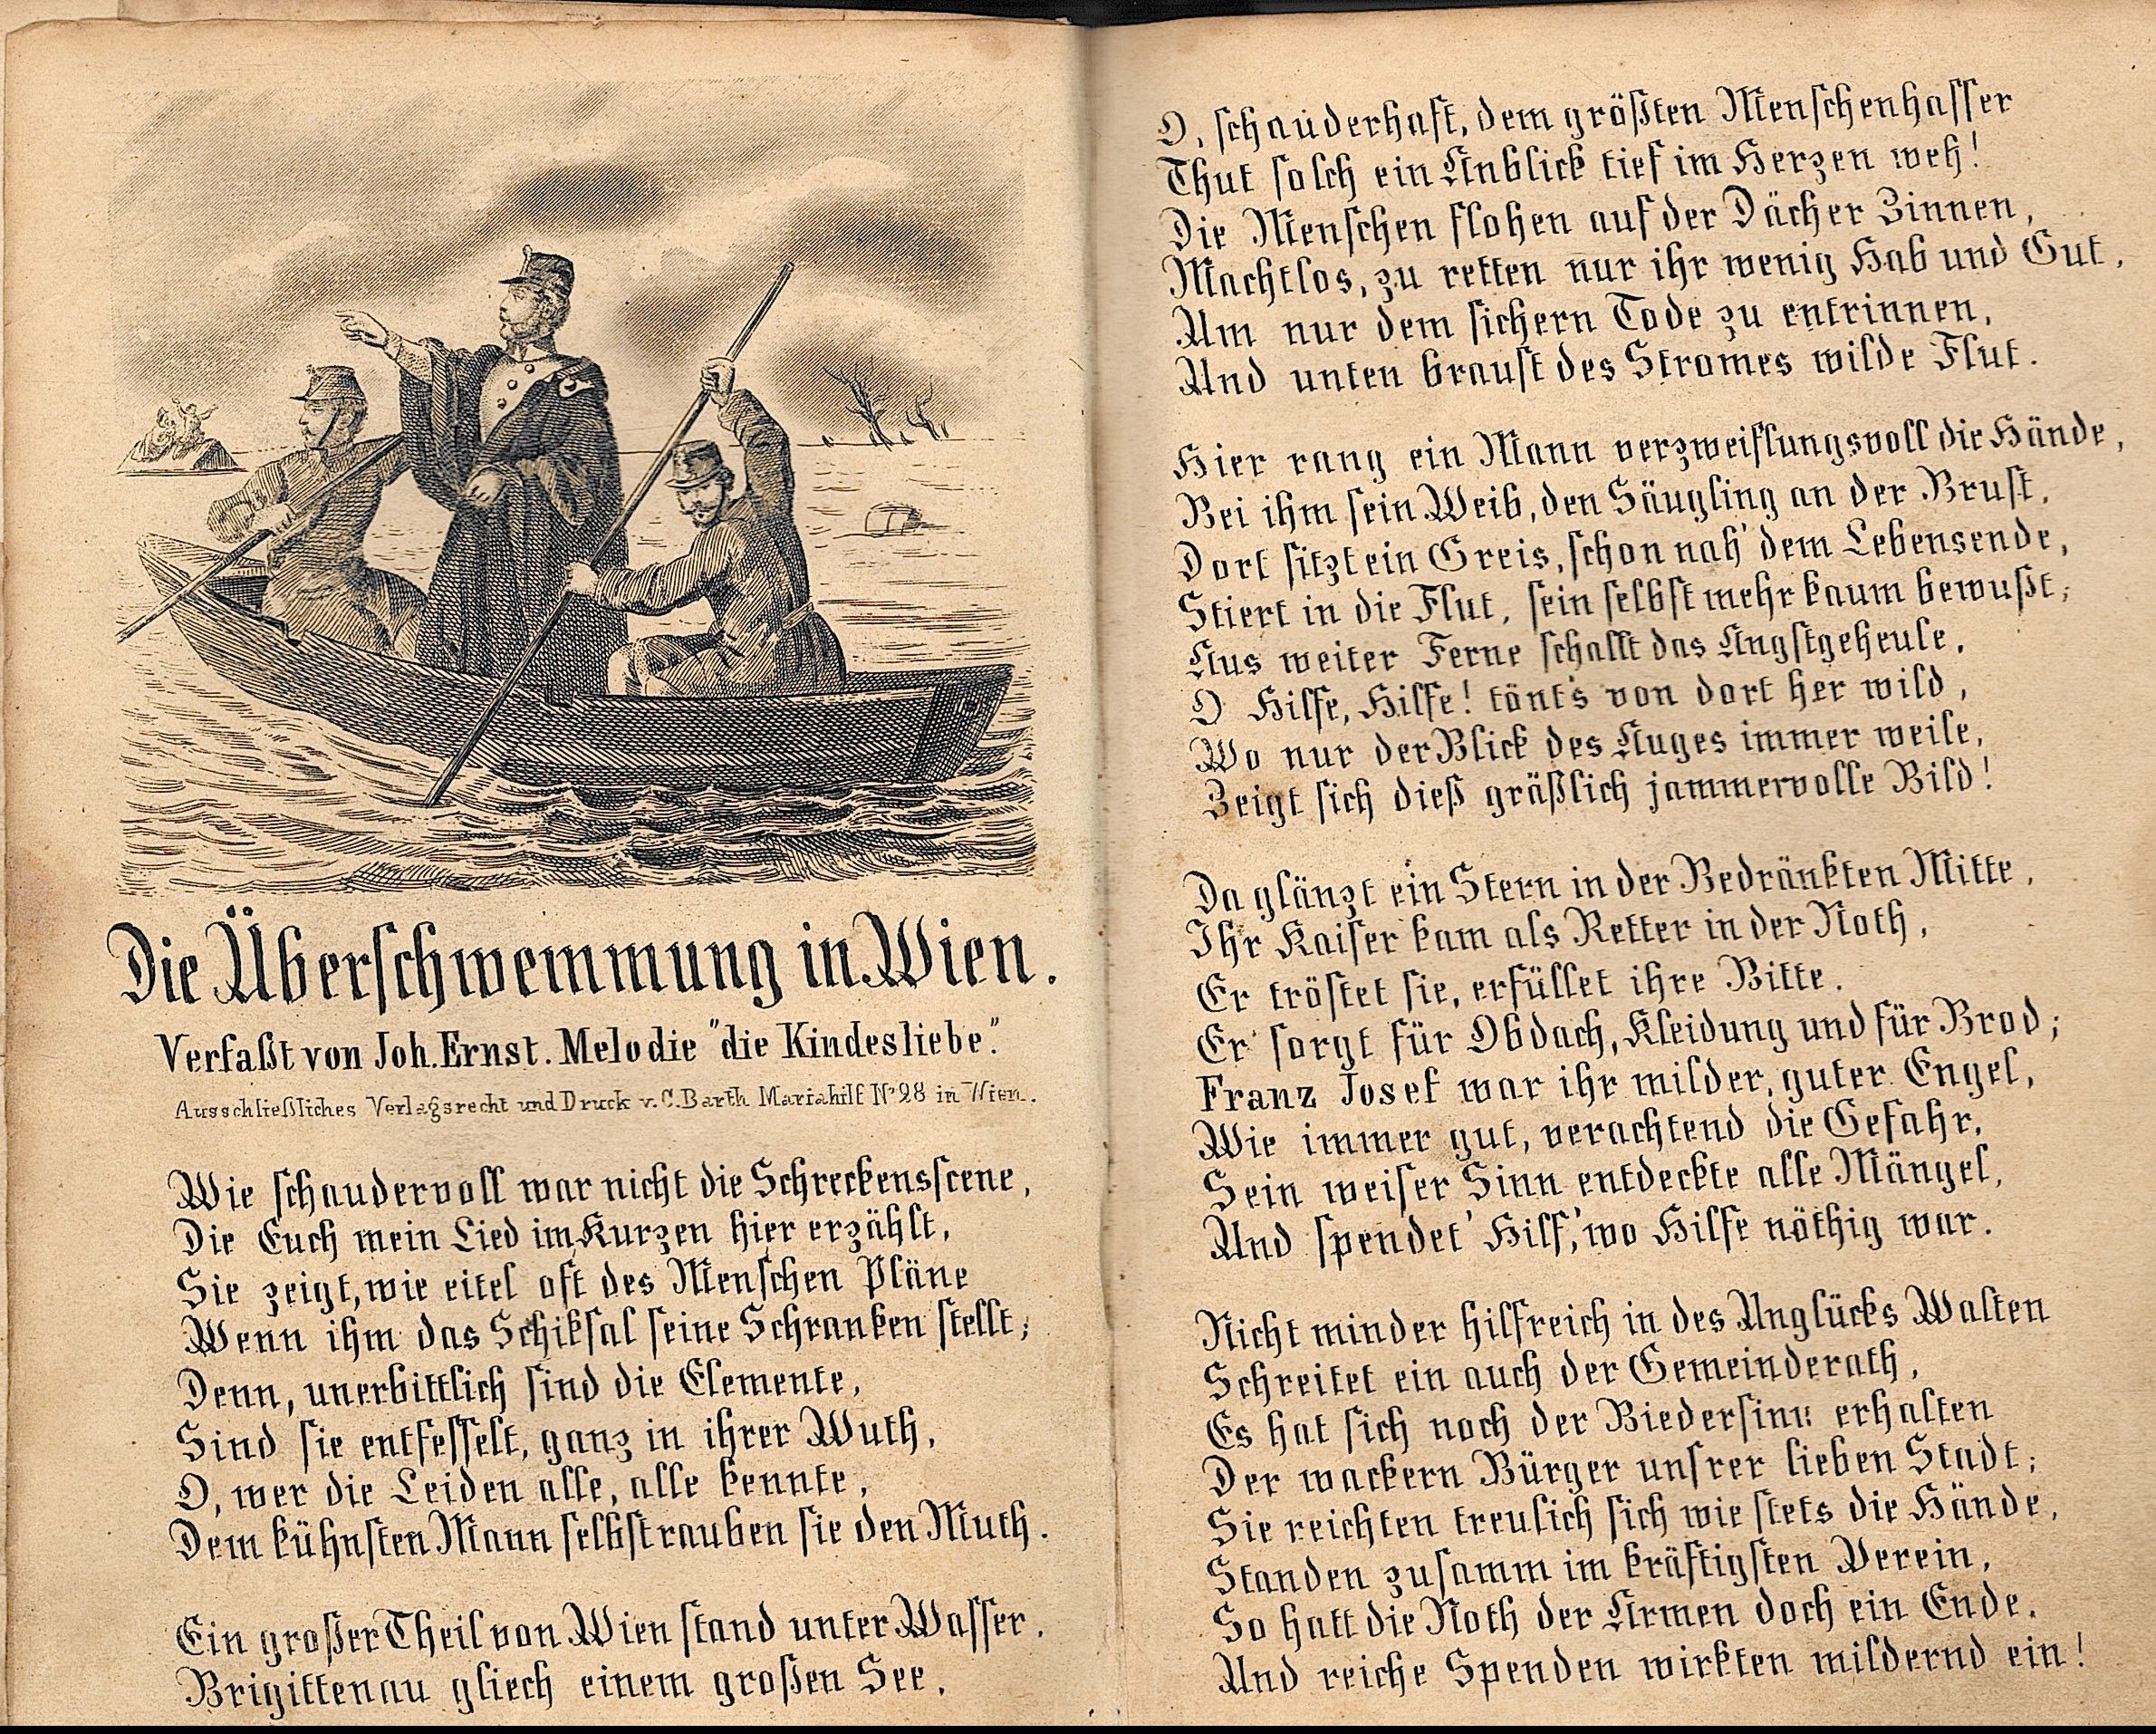 Die Überschwemmung in Wien.
Verfaßt von Joh. Ernst. Melodie "die Kindesliebe."
Ausschließliches Verlagsrecht und Druck v. C. Barth Mariahilf Nº 28 in Wien.
Wie schaudervoll war nicht die Schreckensscene,
Die Euch mein Lied im Kurzen hier erzählt,
Sie zeigt, wie eitel oft des Menschen Pläne
Wenn ihm das Schiksal seine Schranken stellt;
Denn, unerbittlich sind die Elemente,
Sind sie entfesselt, ganz in ihrer Wuth,
O, wer die Leiden alle, alle kennte,
Dem kühnsten Mann selbst rauben sie den Muth.
Ein großer Theil von Wien stand unter Wasser.
Brigittenau gliech einem großen See,
O, schauderhaft, dem größten Menschenhasser
Thut solch ein Anblick tief im Herzen weh!
Die Menschen flohen auf der Dächer Zinnen,
Machtlos, zu retten nur ihr wenig Hab und Gut,
Um nur dem sichern Tode zu entrinnen,
Und unten braust des Stromes wilde Flut.
Hier rang ein Mann verzweiflungsvoll die Hände,
Bei ihm sein Weib, den Säugling an der Brust,
Dort sitzt ein Greis, schon nah' dem Lebensende,
Stiert in die Flut, sein selbst mehr kaum bewußt;
Aus weiter Ferne schallt das Angstgeheule,
O Hilfe, Hilfe! tönt's von dort her wild,
Wo nur der Blick des Auges immer weile,
Zeigt sich dieß gräßlich jammervolle Bild!
Da glänzt ein Stern in der Bedränkten Mitte,
Ihr Kaiser kam als Retter in der Noth,
Er tröstet sie, erfüllet ihre Bitte.
Er sorgt für Obdach, Kleidung und für Brod;
Franz Josef war ihr milder, guter Engel,
Wie immer gut, verachtend die Gefahr,
Sein weiser Sinn entdeckte alle Mängel,
Und spendet' Hilf,' wo Hilfe nöthig war.
Nicht minder hilfreich in des Unglücks Walten
Schreitet ein auch der Gemeinderath,
Es hat sich noch der Biedersinn erhalten
Der wackern Bürger unsrer lieben Stadt;
Sie reichten treulich sich wie stets die Hände,
Standen zusamm im kräftigsten Verein,
So hatt die Noth der Armen doch ein Ende.
Und reiche Spenden wirkten mildernd ein!